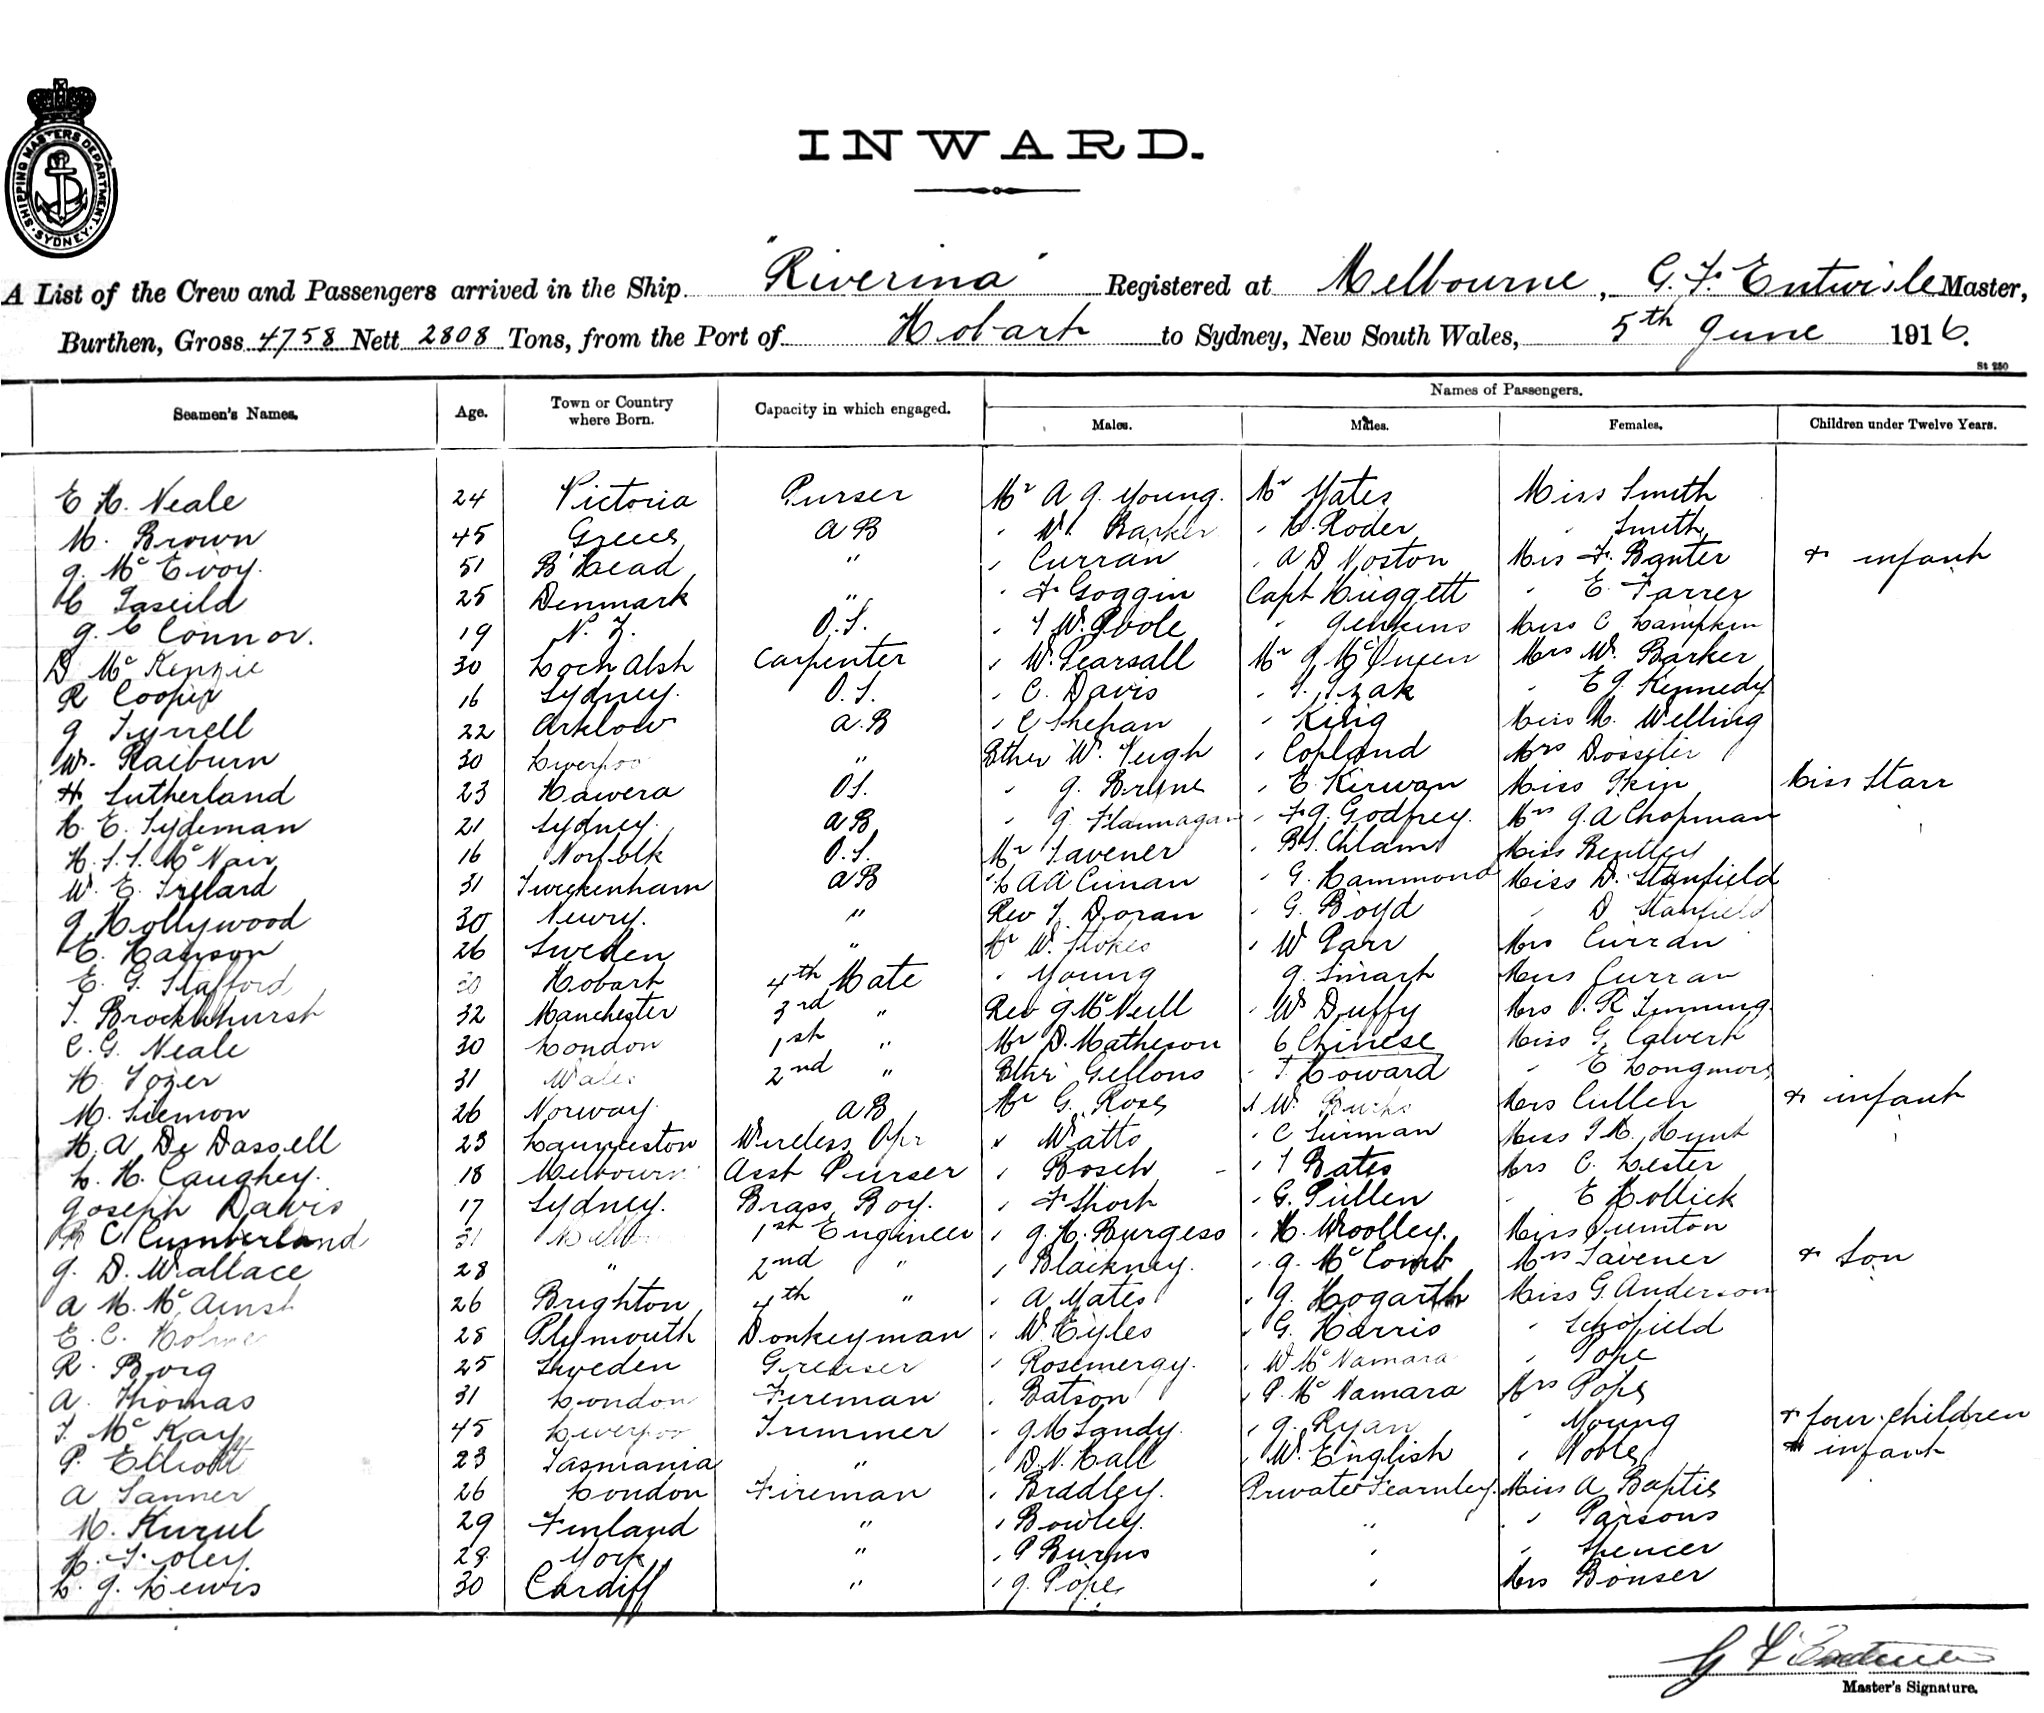 SHIPPING MASTERS DEPARTMENT
SYDNEY
INWARD.
A List of the Crew and Passengers arrived in the Ship "Riverina" Registered at Melbourne, G. F. Entwisle Master,
Burthen, Gross 4758 Nett 2808 Tons, from the Port of Hobart to Sydney, New South Wales, 5th June 1916.
St 250
Names of Passengers.
Seamen's Names. Age. Town or Country where Born. Capacity in which engaged. Males. Males. Females. Children under Twelve Years.
E H. Neale 24 Victoria Purser Mr A J. Young. Mr Yates Miss Smith
M. Brown 45 Greece AB " W. Barker " Roder " Smith
J. McEvoy. 51 B'Head " " Curran " A D Noston Mrs F. Banter + infant
25 Denmark " " F Goggin Capt Huggett " E. Farrer
J. C Connor. 19 N. Z. O.S. " W. Poole " Jenkins Miss C Lampkin
D McKenzie 30 Loch Alsh Carpenter " W. Pearsall Mr J McQueen Mrs W. Barker
R Cooper 16 Sydney. O.S. " C. Davis " Izak " E J. Kennedy
J Tyrrell 22 Arklow A.B " C Shehan " King Miss M. Welling
W. Raeburn 30 Liverpoo " Bther W. Veugh " Copland Mrs Dossiter
H Sutherland 23 Hawera OS. " J. Bryne " E. Kirwan Miss Skin Miss Starr
H. E. Sydeman 21 Sydney. AB " J Flannagan " F J. Godfrey. Mrs J. A Chapman
H. S. S. McNair 16 Norfolk O.S. Mr Tavener " Chlam Miss Bentley
W. E. Ireland 31 Twickenham AB " L A A Cunan " G. Hammond Miss D. Stanfield
J Hollywood 30 Newry. " Rev T. Doran " G. Boyd " D Stanfield
E. Hanson 26 Sweden " Mr W. Stokes " W Parr Mrs Curran
E. G. Stafford Hobart 4th Mate " Young J. Smart Miss Curran
T. Brocklehurst 32 Manchester 3rd " Rev J McNeill " W Duffy Mrs R Timming
C. G. Neale 30 London 1st " Mr D. Matheson 6 Chinese Miss G. Calvert
H. Tozer 31 Wales 2nd " Bther Gellons " T Howard " E Longmore
M. Siemon 26 Norway. AB Mr G. Ross " W. Mrs Cullen + infant
H. A De Dassell 23 Launceston Wireless Opr " Watts " C Surman Miss I M. Hunt
L. H. Caughey. 18 Melbourn Asst Purser " Bosch " T Bates Mrs C. Lester
Joseph Davis 17 Sydney. Brass Boy. " F Short " G. Pullen " E Hollick
C Cumberland 31 1st Engineer " J. H. Burgess " H. Woolley. Miss Quinton
J. D. Wallace 28 " 2nd " " Blackney. " J. McComb Mrs Tavener + Son
A M. McAinsh 26 Brighton 4th " " A Yates " J. Hogarth Miss G. Anderson
E. C. Holmes 28 Plymouth Donkeyman " W. Eyles " G. Harris " Schofield
R. Borg 25 Sweden Greaser " Rosemergy. " W McNamara " Pope
A. Thomas 31 London Fireman " Batson " P. McNamara Mrs Pope
T. McKay 45 Liverpoo Trimmer " J M Sandy. " J. Ryan " Young + four children
P. Elliott 23 Tasmania " " D. N. Hall " W. English " Noble + infant
A Tanner 26 London Fireman " Bradley. Private Fearnley. Miss A Baptis
M. Kurul 29 Finland " " Bowley. " " Parsons
H. Foley. 29 York " " P Burns " " Spencer
L. J. Lewis 30 Cardiff " " J. Pope " Mrs Bonser
Master's Signature.